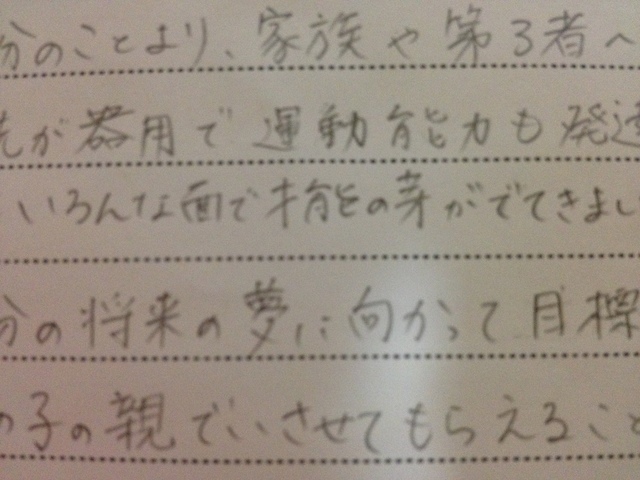 分のことより、家族や第3者へ
先が器用で運動能力も発達
いろんな面で才能の芽がでてきまし
分の将来の夢に向かって目標
の子の親でいさせてもらえること